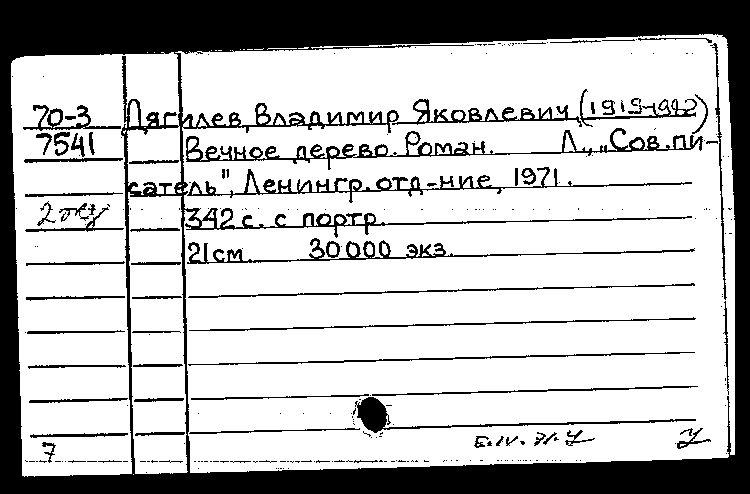 70-3 Дягилев, Владимир Яковлевич, (1919-1982)
7541 Вечное дерево. Роман. Л., „Сов.пи-
сатель", Ленингр. отд-ние, 1971.
2 экз 342 с. с портр.
21 см 30000 экз.
7 У